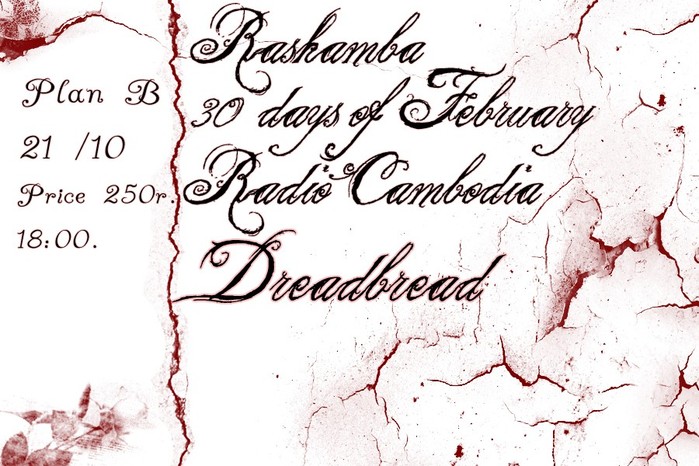 Plan B
21 /10
Price 250r.
18:00.
Raskamba
30 days of February
Radio Cambodia
Dreadbread